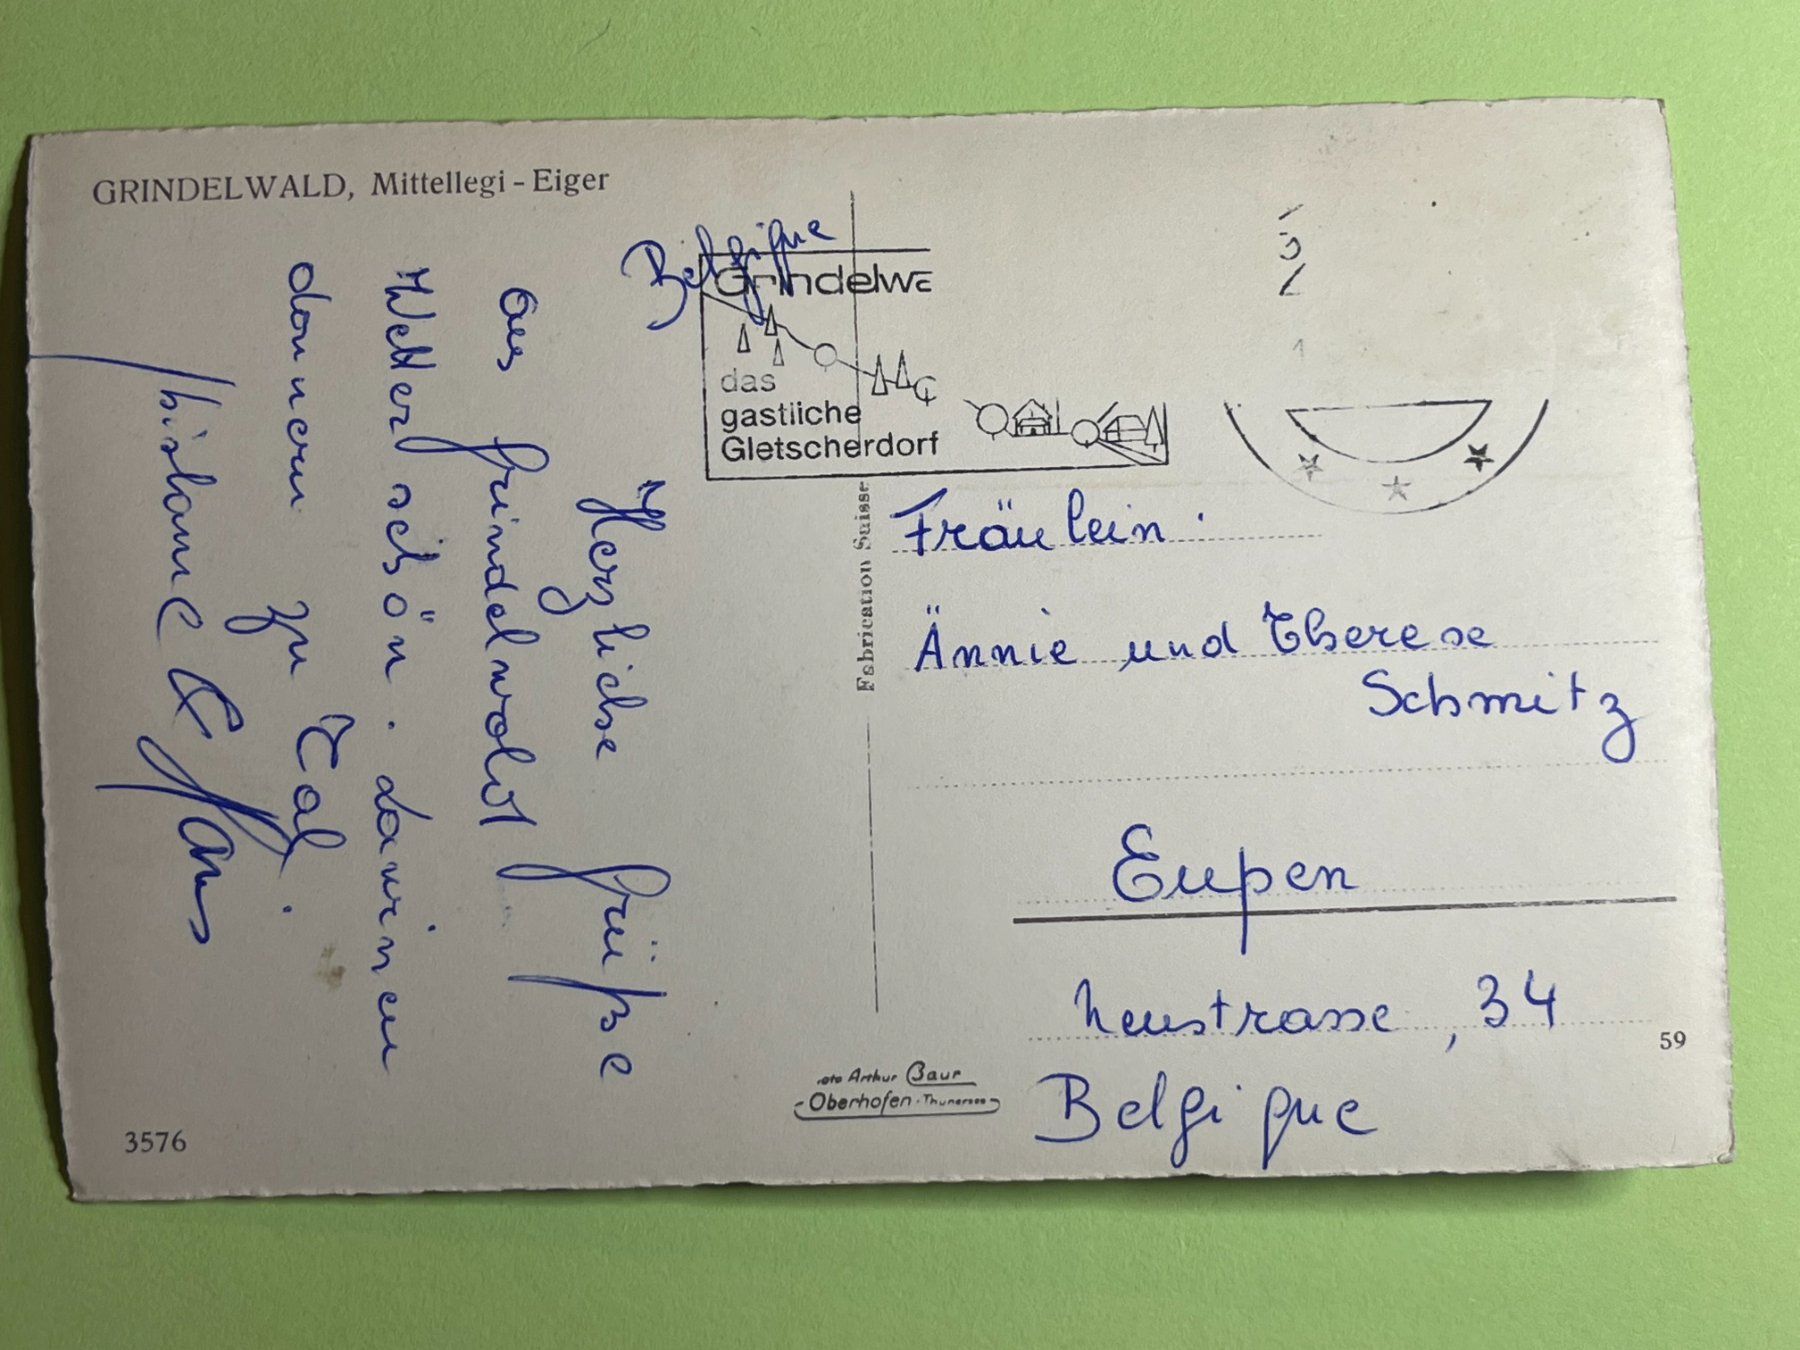 GRINDELWALD, Mittellegi - Eiger
Belgique
Herzliche Grüße
aus Grindelwald
Wetter schön. Lawinen
donnern zu Tal.
& Hans
Grindelwa
das
gastliche
Gletscherdorf
Fabrication Suisse
Fräulein:
Ännie und Therese
Schmitz
Eupen
Neustrasse, 34
Belgique
59
Arthur Baur
Oberhofen - Thunersee
3576